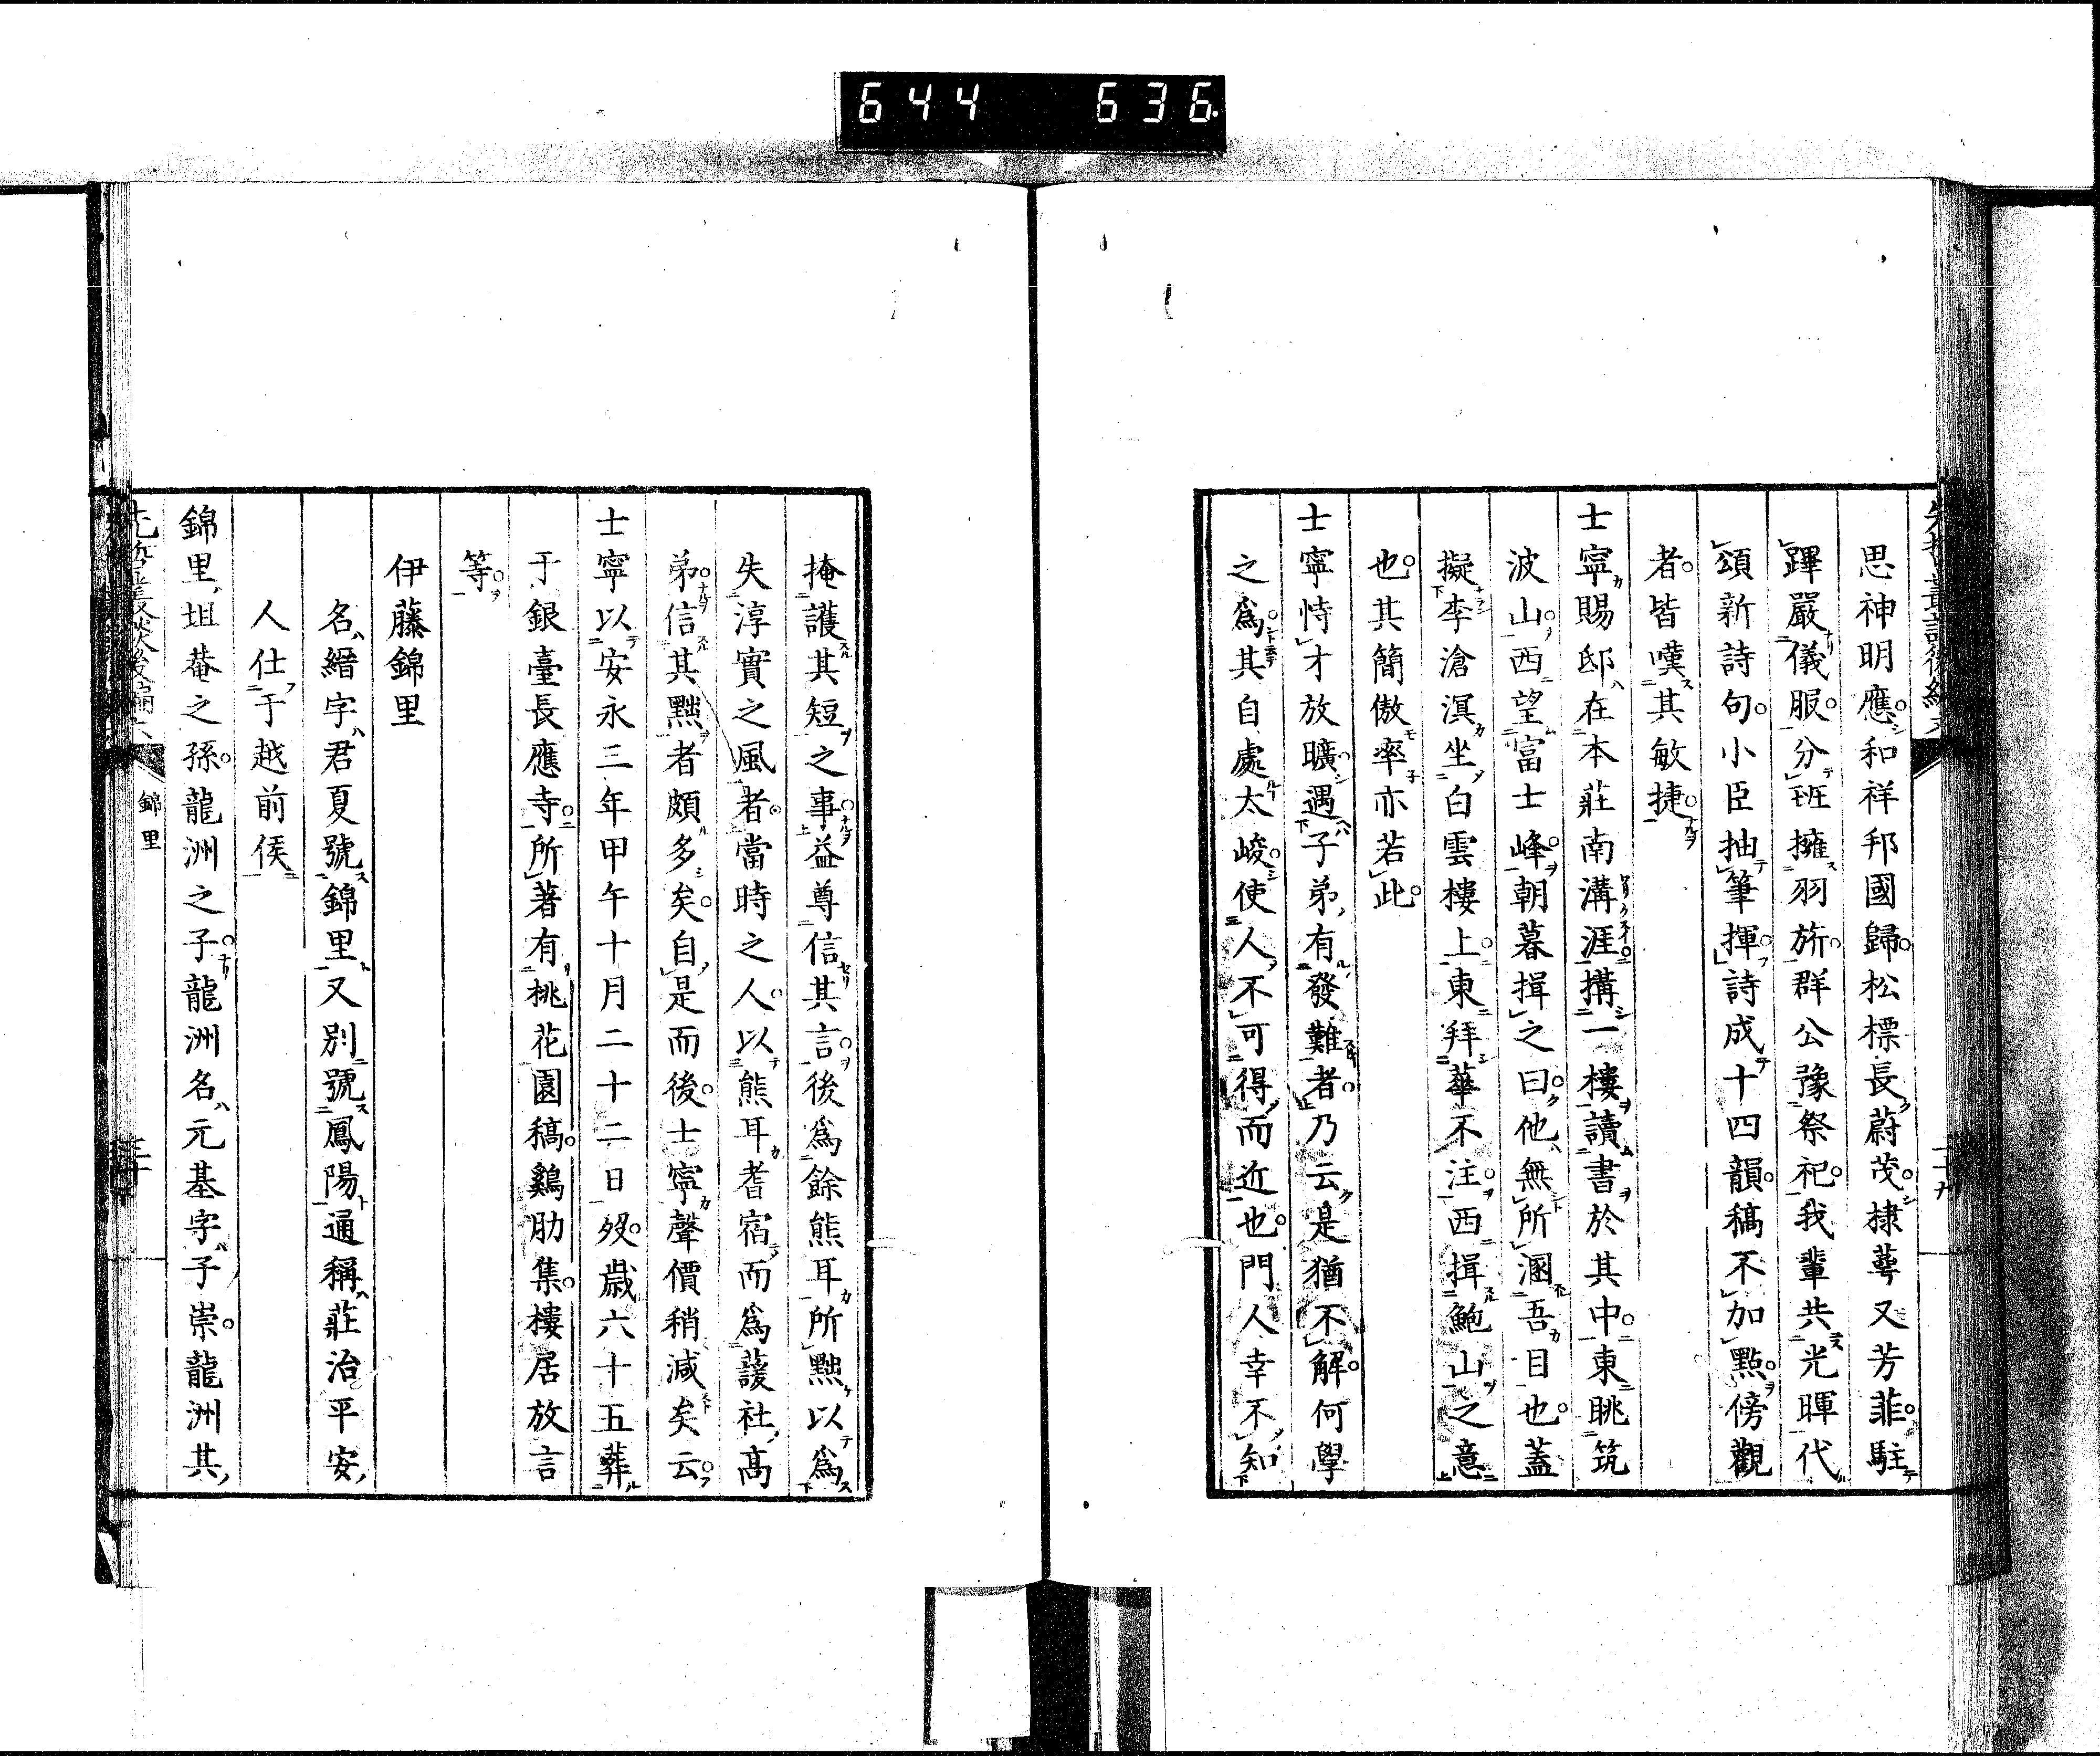 644 636
思神明應和祥邦國歸松標長蔚茂棣萼又芳菲駐
蹕嚴儀服分班擁羽旂群公豫祭祀我輩共光暉代
頌新詩句小臣抽筆揮詩成十四韻稿不加點傍觀
者皆嘆其敏捷
士寧賜邸在本莊南溝涯搆一樓讀書於其中東眺筑
波山西望富士峰朝暮揖之曰他無所溷吾目也蓋
擬李滄溟坐白雲樓上東拜華不注西揖鮑山之意
也其簡傲率亦若此
士寧恃才放曠遇子弟有發難者乃云是猶不解何學
之爲其自處太峻使人不可得而近也門人幸不知
掩護其短之事益尊信其言後爲餘熊耳所黜以爲
失淳實之風者當時之人以熊耳耆宿而爲蘐社高
弟信其黜者頗多矣自是而後士寧聲價稍減矣云
士寧以安永三年甲午十月二十二日歿歲六十五葬
于銀臺長應寺所著有桃花園稿鷄肋集樓居放言
等
伊藤錦里
名縉字君夏號錦里又別號鳳陽通稱莊治平安
人仕于越前侯
錦里坦菴之孫龍洲之子龍洲名元基字子崇龍洲其
錦里